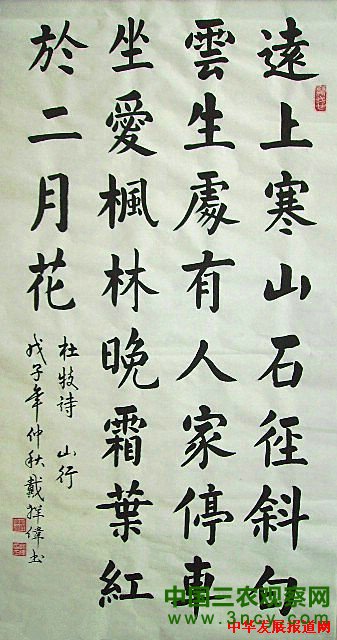 遠上寒山石径斜白
雲生處有人家停車
坐愛楓林晚霜葉紅
於二月花
杜牧诗 山行
戊子年仲秋戴祥偉书
中国三农观察网
中华发展报道网